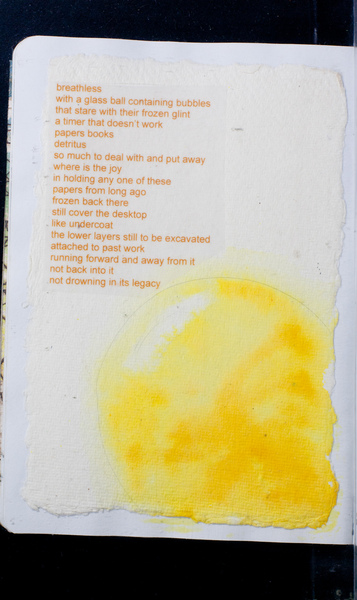 breathless
with a glass ball containing bubbles
that stare with their frozen glint
a timer that doesn't work
papers books
detritus
so much to deal with and put away
where is the joy
in holding any one of these
papers from long ago
frozen back there
still cover the desktop
like undercoat
the lower layers still to be excavated
attached to past work
running forward and away from it
not back into it
not drowning in its legacy